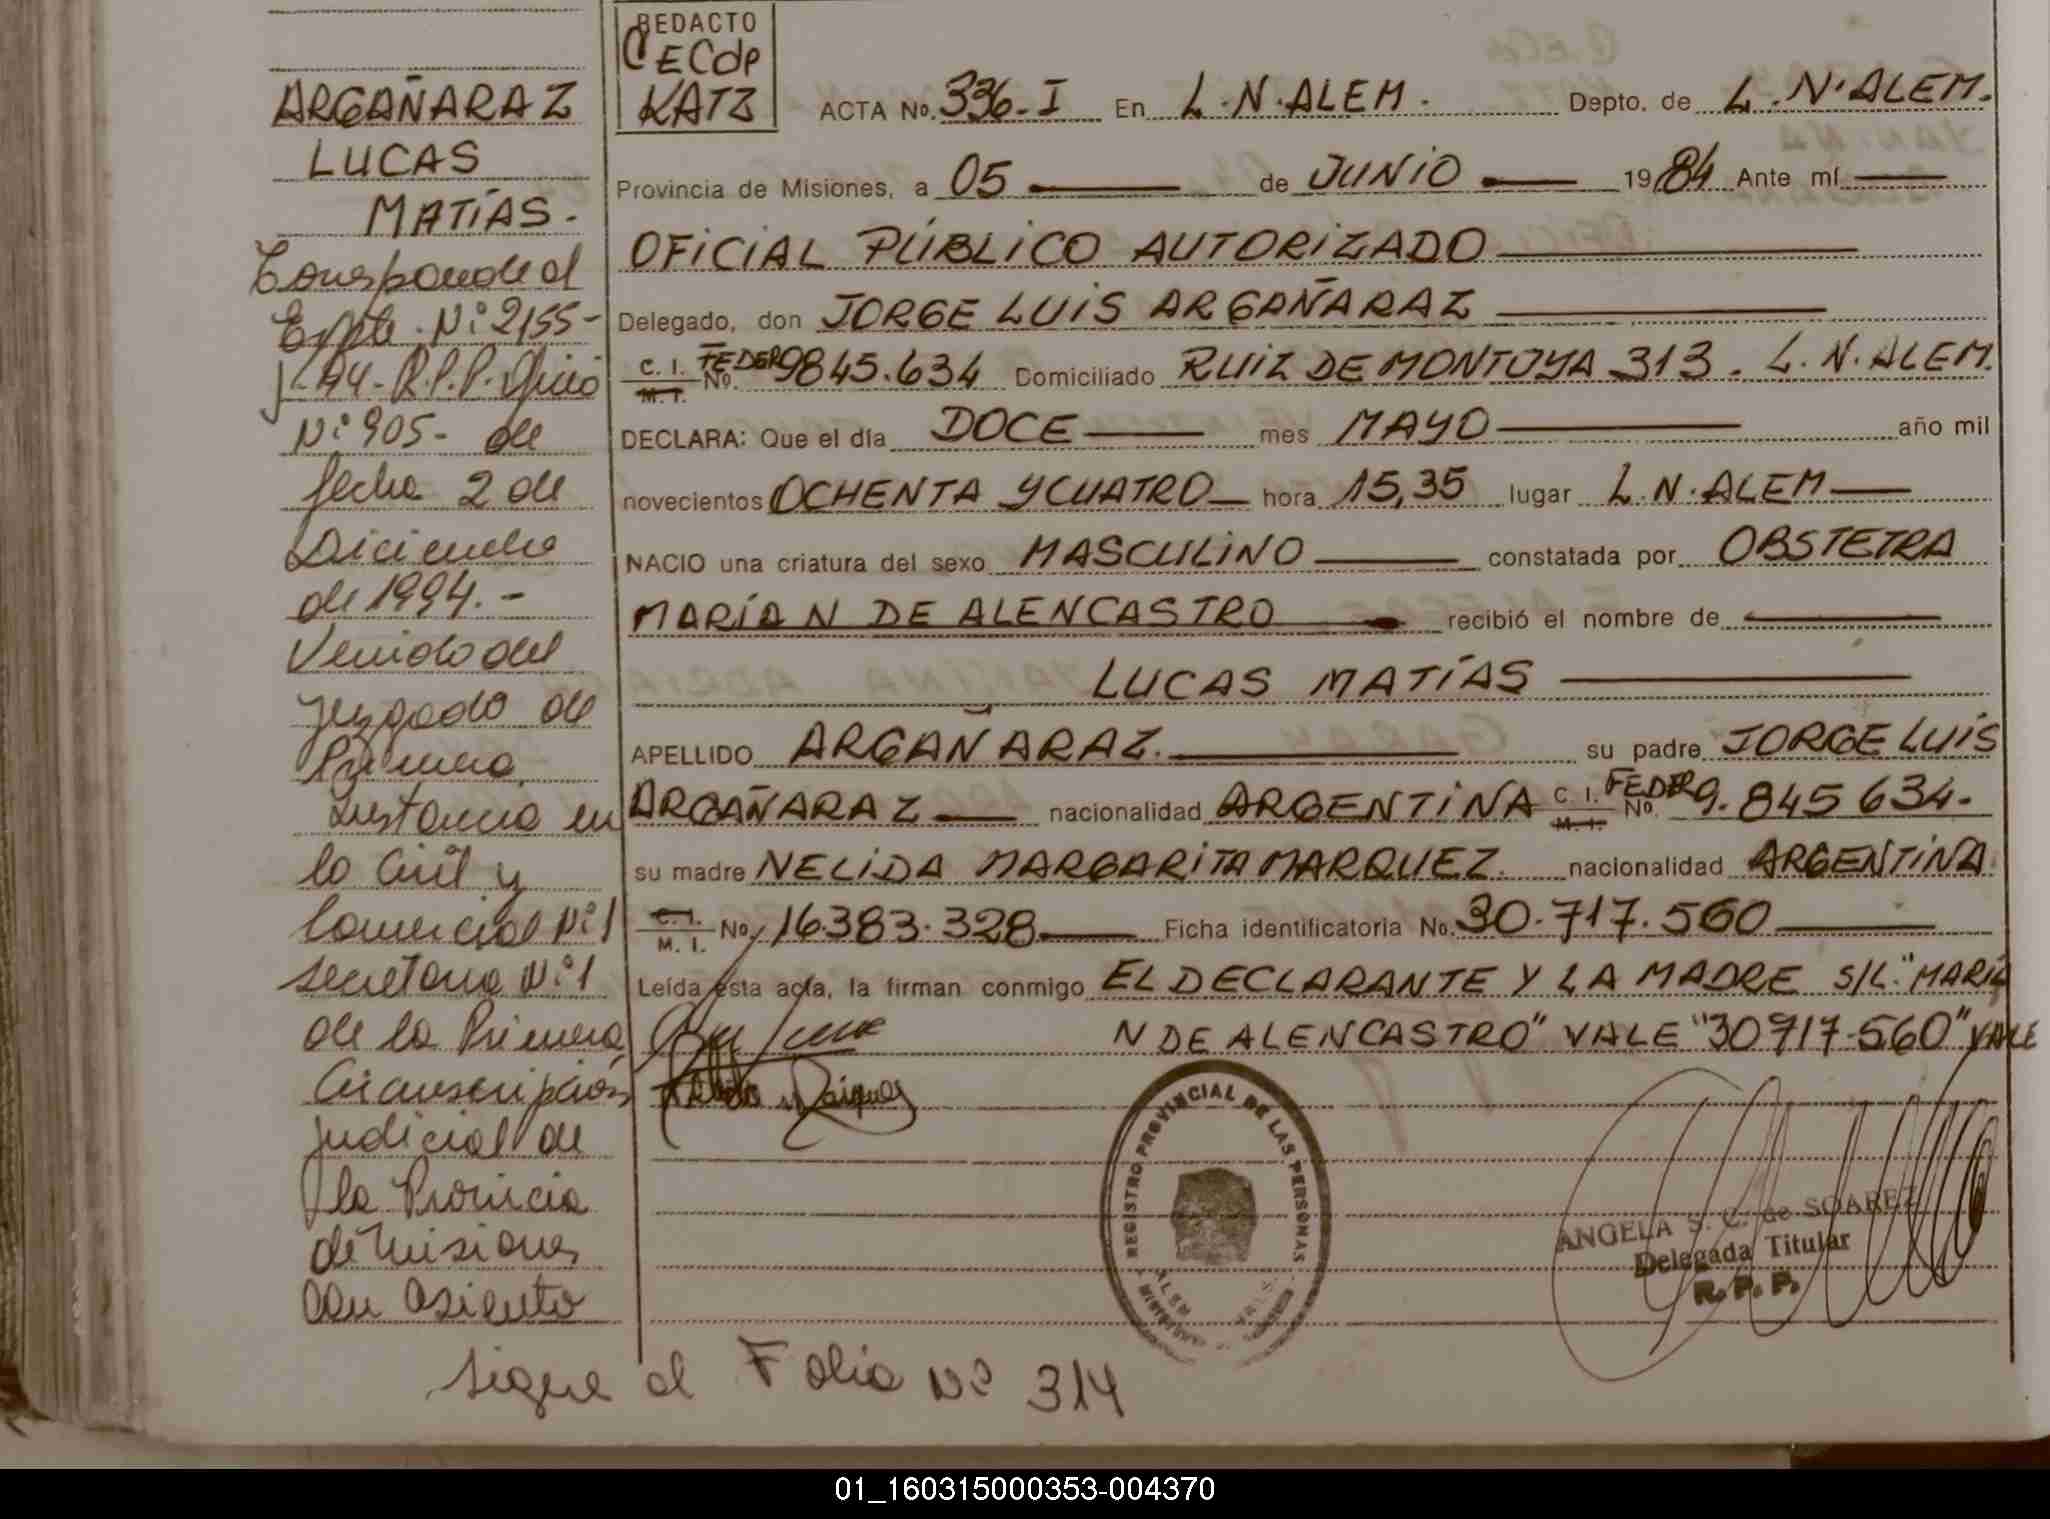 ARGAÑARAZ
LUCAS
MATÍAS.
Corresponde al
Expte. Nº 2155-
R.P.P. Oficio
Nº 905- de
fecha 2 de
Diciembre
de 1994.-
Venido del
Juzgado de
Primera
Instancia en
lo Civil y
Comercial Nº1
Secretaria Nº1
de la Primera
Circunscripción
judicial de
la Provincia
de Misiones
con asiento
REDACTO
CECdP
KATZ
ACTA No. 336-I En L.N.ALEM. Depto. de L.N.ALEM.
Provincia de Misiones, a 05 de JUNIO 1984 Ante mí
OFICIAL PÚBLICO AUTORIZADO
Delegado, don JORGE LUIS ARGAÑARAZ
C. I. M. I. No. FEDER 9845.634 Domiciliado RUIZ DE MONTOYA 313. L.N.ALEM.
DECLARA: Que el día DOCE mes MAYO año mil
novecientos OCHENTA Y CUATRO hora 15,35 lugar L.N.ALEM
NACIO una criatura del sexo MASCULINO constatada por OBSTETRA
MARÍA N DE ALENCASTRO recibió el nombre de
LUCAS MATÍAS
APELLIDO ARGAÑARAZ. su padre JORGE LUIS
ARGAÑARAZ nacionalidad ARGENTINA C. I. M. I. No. FEDER 9.845 634.
su madre NELIDA MARGARITA MARQUEZ. nacionalidad ARGENTINA
C. I. M. I. No. 16.383.328 Ficha identificatoria No. 30.717.560
Leída esta acta, la firman conmigo EL DECLARANTE Y LA MADRE S/L. "MARÍA
N DE ALENCASTRO" VALE "30717.560" VALE
REGISTRO PROVINCIAL DE LAS PERSONAS
ALEM
MISIONES
ANGELA S. C. de SOAREZ
Delegada Titular
R. P. P.
Sigue al Folio Nº 314
01_160315000353-004370